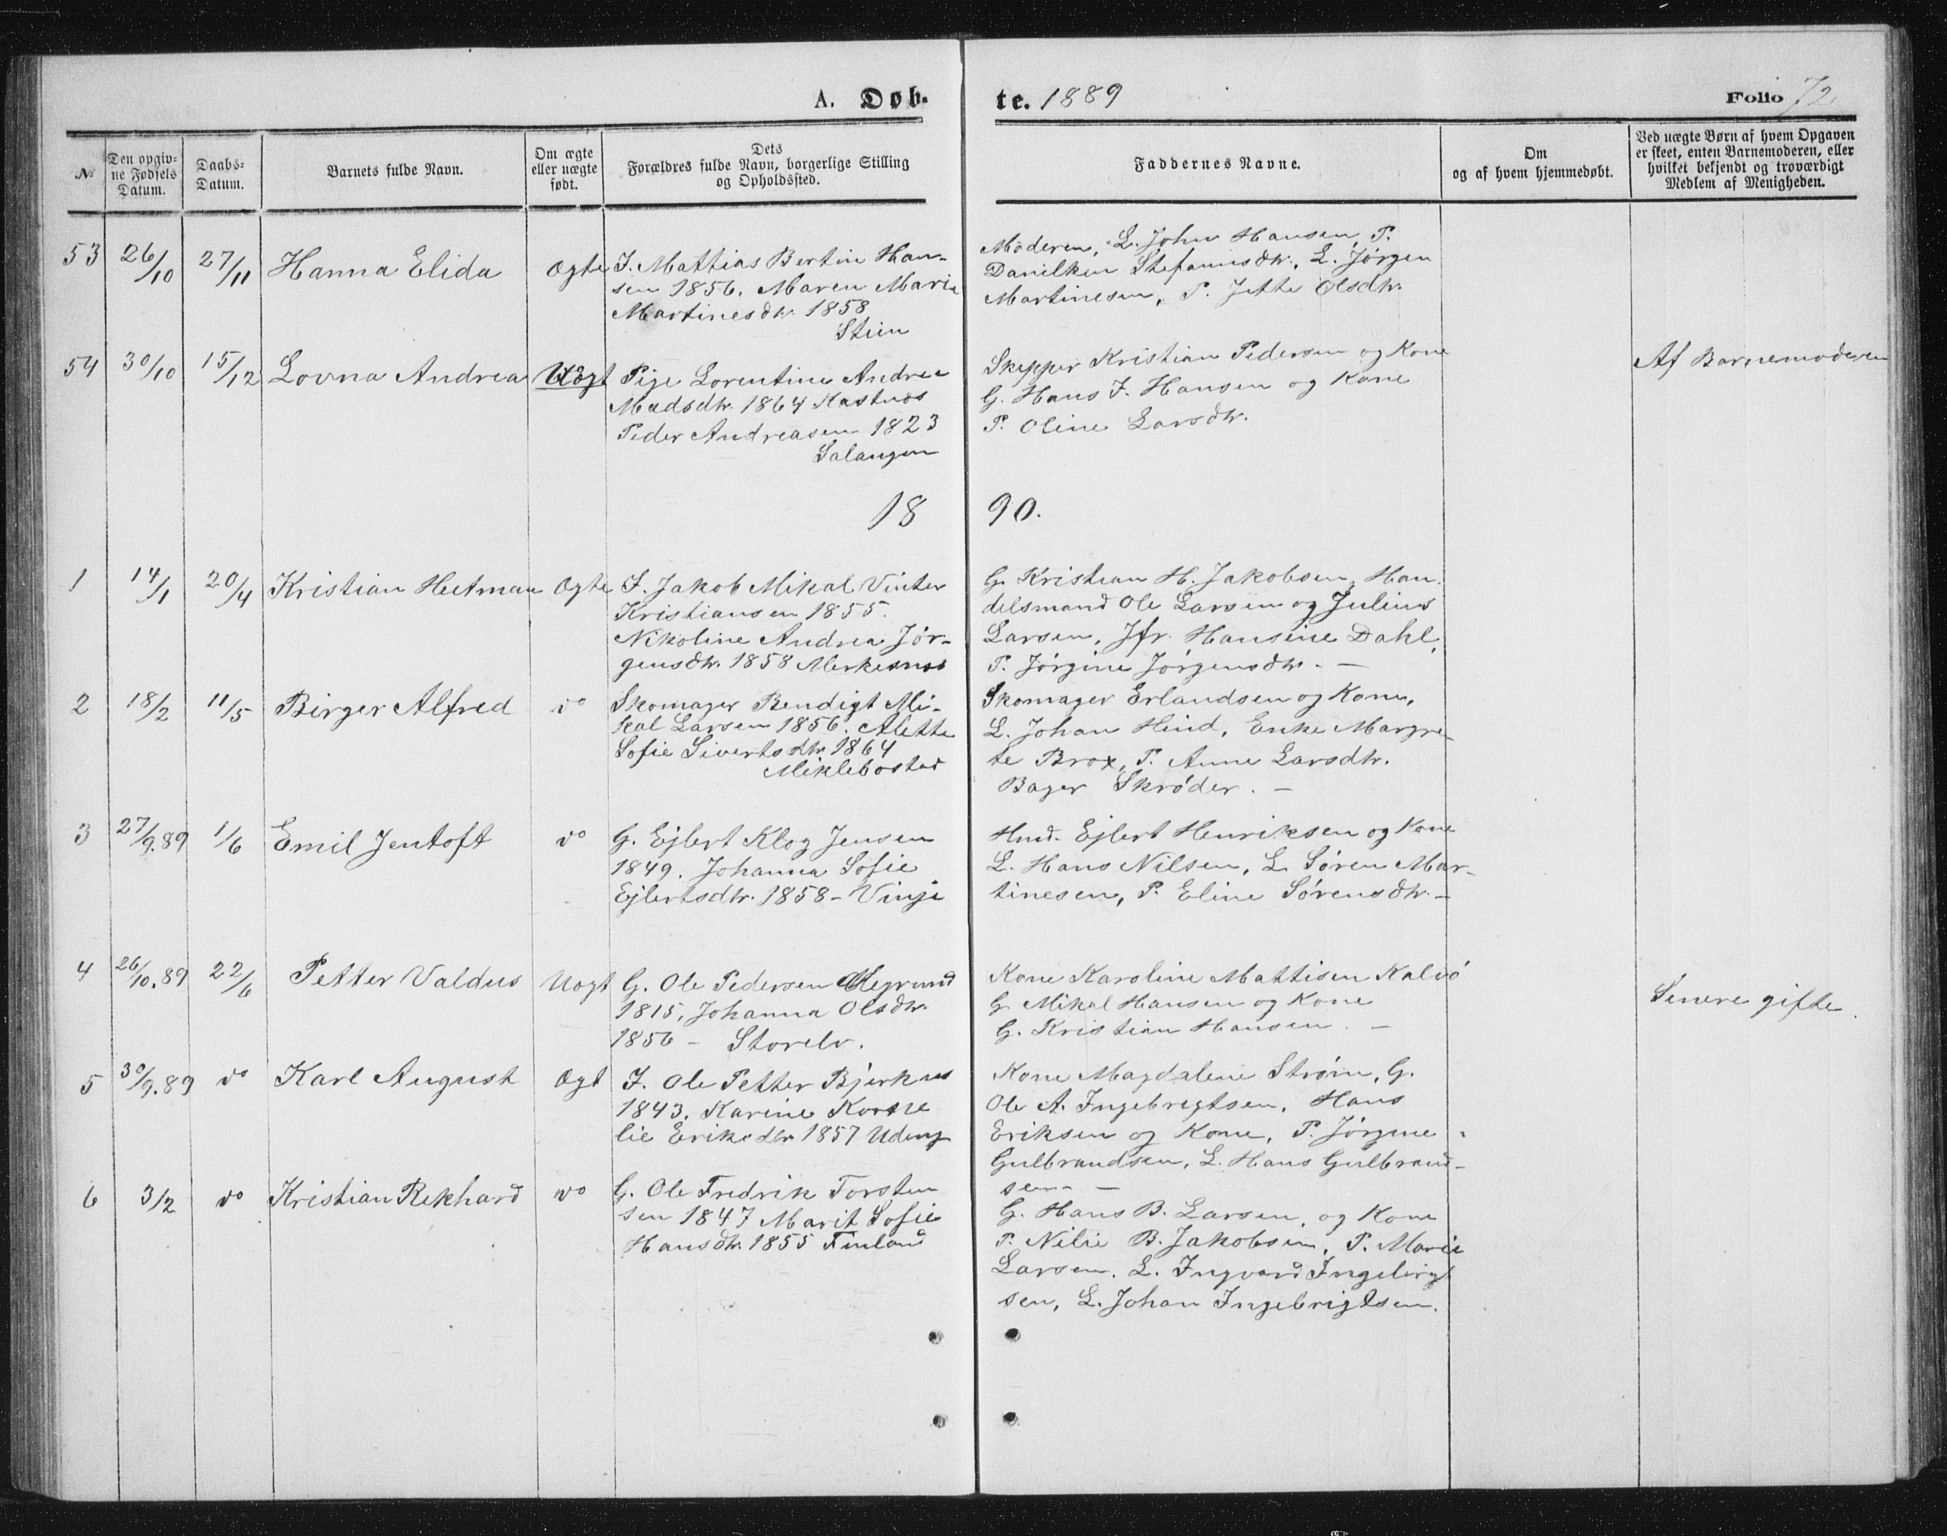 A. Døb-
te. 1889
Folio 72.
No
Den opgiv-
ne Fødsels
Datum.
Daabs-
Datum.
Barnets fulde Navn.
Om ægte
eller uægte
født.
Dets
Forældres fulde Navn, borgerlige Stilling
og Opholdssted.
Faddernes Navne.
Om
og af hvem hjemmedøbt.
Ved uægte Børn af hvem Opgaven
er skeet, enten Barnemoderen, eller
hvilket bekjendt og troværdigt
Medlem af Menigheden.
53 26/10 27/11 Hanna Elida Ogte I. Mattias Bertin Han-
sen 1856. Maren Marie
Martinesdtr. 1858
Stien
Moderen, L. John Hansen, P.
Danilken Stefannsdtr., L. Jørgen
Martinesen, P. Jette Olsdtr.
54 30/10 15/12 Lovna Andrea Uogt Pige Lorentine Andrea
Madsdtr. 1864 Kastnes
Peder Andreasen 1823
Salangen
Skipper Kristian Pedersen og Kone
G. Hans J. Hansen og Kone
P. Oline Larsdtr.
Af Barnemoderen
18 90.
1 14/1 20/4 Kristian Heitman Ogte I. Jakob Mikal Vinter
Kristiansen 1855.
Nikoline Andrea Jør-
gensdtr. 1858 Merkesnes
G. Kristian H. Jakobsen, Han-
delsmand Ole Larsen og Julius
Larsen, Jfr. Hansine Dahl,
P. Jørgine Jørgensdtr. —
2 18/2 11/5 Birger Alfred do Skomager Bendigt Mi-
kal Larsen 1856. Alette
Sofie Sivertsdtr. 1864
Miklebostad
Skomager Erlandsen og Kone,
L. Johan Hind, Enke Margre-
te Brox, P. Anne Larsdtr.
Bager Skrøder. —
3 27/9.89 1/6 Emil Jentoft do G. Ejlert Klog Jensen
1849. Johanna Sofie
Ejlertsdtr. 1858 - Vinje
Hmd. Ejlert Henriksen og Kone
L. Hans Nilsen, L. Søren Mar-
tinesen, P. Eline Sørensdtr. —
4 26/10.89 22/6 Petter Valdus Uogt G. Ole Pedersen Megrund
1815, Johanna Olsdtr.
1856 - Storelv.
Kone Karoline Mattisen Kalvø
G. Mikal Hansen og Kone
G. Kristian Hansen. —
Senere gifte.
5 30/9.89 do Karl August Ogt I. Ole Petter Bjerknes
1843. Karine Korne
lie Eriksdtr 1857 Udeng
Kone Magdalene Strøm, G.
Ole A. Ingebrigtsen, Hans
Eriksen og Kone, P. Jørgine
Gulbrandsen, L. Hans Gulbrand-
sen. —
6 3/2 do Kristian Rekhard do G. Ole Fredrik Torsten
sen 1847 Marit Sofie
Hansdtr. 1855 Finland
G. Hans B. Larsen, og Kone
P. Nilie B. Jakobsen, P. Marie
Larsen. L. Ingvard Ingebrigt
sen, L. Johan Ingebrigtsen.